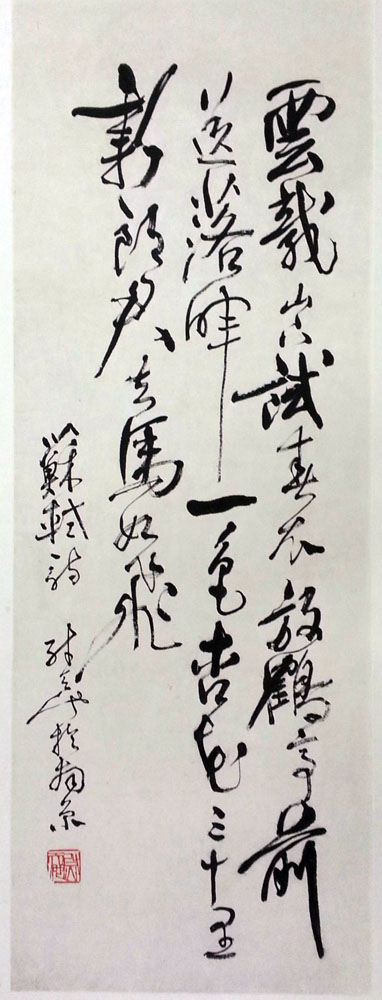 雲龍山下試春衣放鶴亭前
送落暉一色杏花三十里
新郎君去馬如飛
蘇軾詩 於京